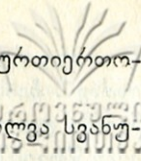 ურთიერთო-
ლვა სვანუ-